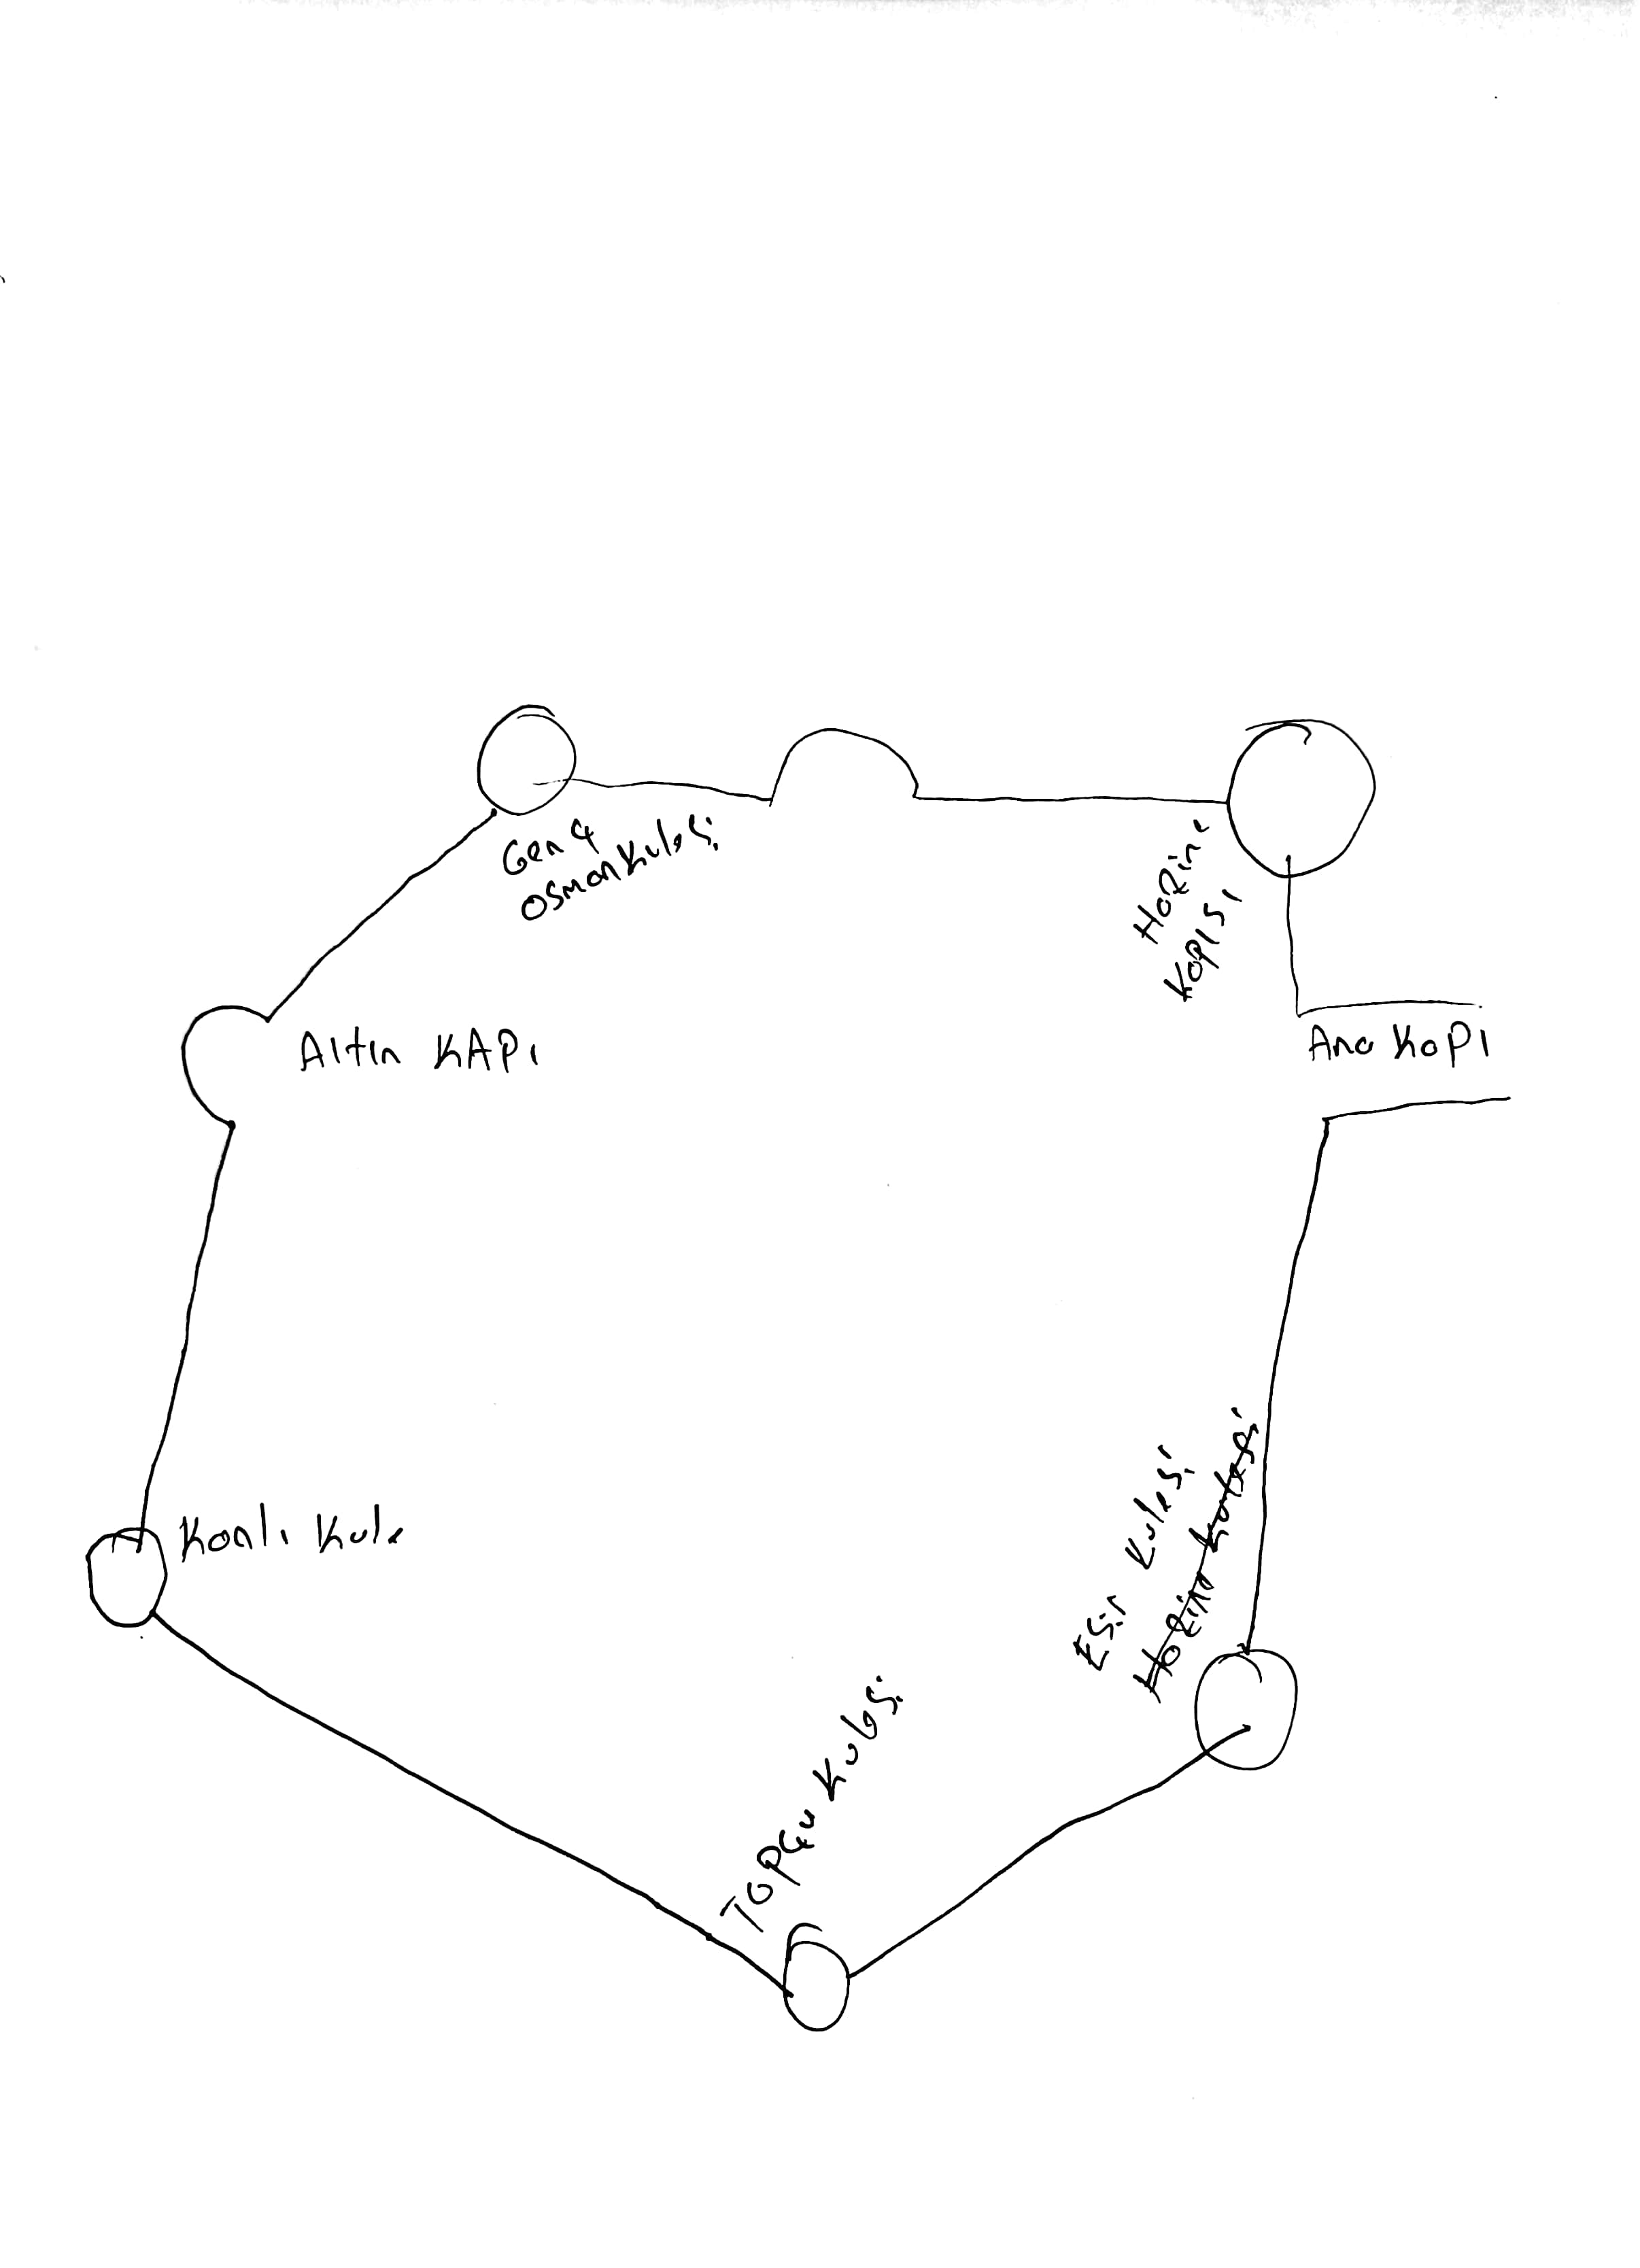 Genç
Osman Kulesi
Hazine
Kapısı
Altın KAPı
Ana KaPI
Kanlı Kule
Esir Kulesi
TOPÇu Kulesi